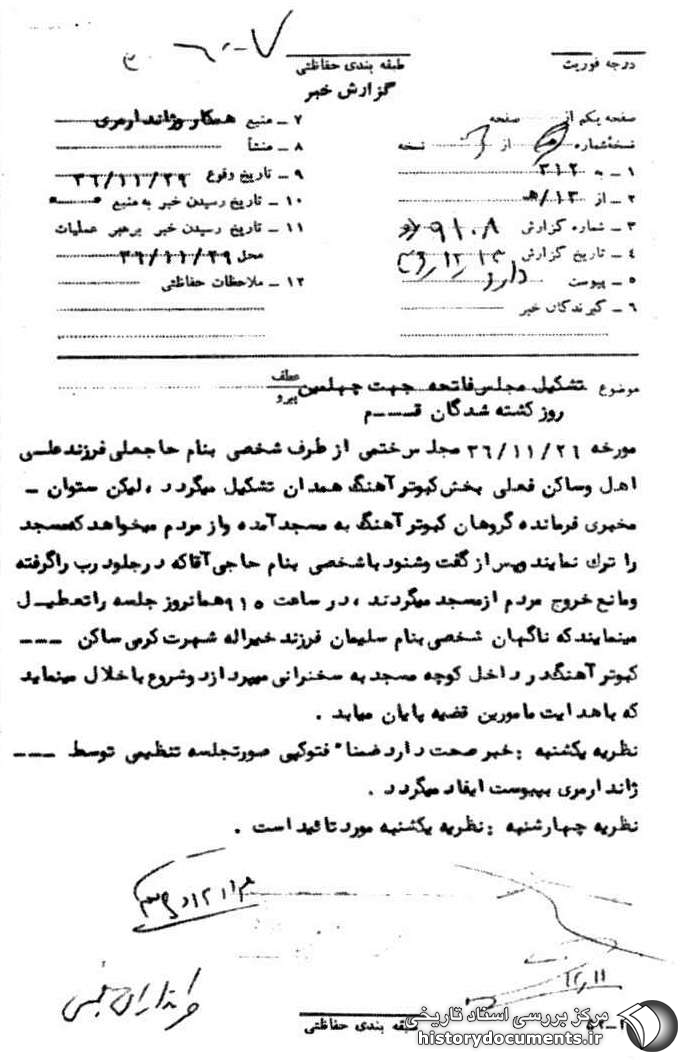 درجه فوریت
طبقه بندی حفاظتی
گزارش خبر
صفحه یکم از صفحه
نسخه شماره از نسخه
۱ ـ به ۳۱۲
۲ ـ از ۱۳/هـ
۳ ـ شماره گزارش ۹۱۰۸
۴ ـ تاریخ گزارش
۵ ـ پیوست دارد
۶ ـ گیرندگان خبر
۷ ـ منبع همکار وژاندارمری
۸ ـ منشأ
۹ ـ تاریخ وقوع ۳۶/۱۱/۲۹
۱۰ ـ تاریخ رسیدن خبر به منبع
۱۱ ـ تاریخ رسیدن خبر برهبر عملیات
محل ۳۶/۱۱/۲۹
۱۲ ـ ملاحظات حفاظتی
موضوع تشکیل مجلس فاتحه جهت چهلمین عطف
پیرو
روز کشته شدگان قـــم
مورخه ۳۶/۱۱/۲۹ مجلس ختمی از طرف شخصی بنام حاجعلی فرزند علی
اهل وساکن فعلی بخش کبوتر آهنگ همدان تشکیل میگردد ، لیکن ستوان ـ
مخبری فرمانده گروهان کبوتر آهنگ به مسجد آمده واز مردم میخواهد که مسجد
را ترك نمایند وپس از گفت وشنود باشخصی بنام حاجی آقاکه در جلود رب راگرفته
ومانع خروج مردم از مسجد میگردند ، در ساعت ۹۱۵ همانروز جلسه راتعطیل
مینمایند که ناگهان شخصی بنام سلیمان فرزند خیراله شهرت کرمی ساکن ـــ
کبوتر آهنگ در داخل کوچه مسجد به سخنرانی میپردازد وشروع باخلال مینماید
که باهدایت مامورین قضیه پایان میابد .
نظریه یکشنبه : خبر صحت دارد ضمنا" فتوکپی صورتجلسه تنظیمی توسط ـــ
ژاندارمری بپیوست ایفاد میگردد .
نظریه چهارشنبه : نظریه یکشنبه مورد تائید است .
طبقه بندی حفاظتی
مرکز بررسی اسناد تاریخی
historydocuments.ir